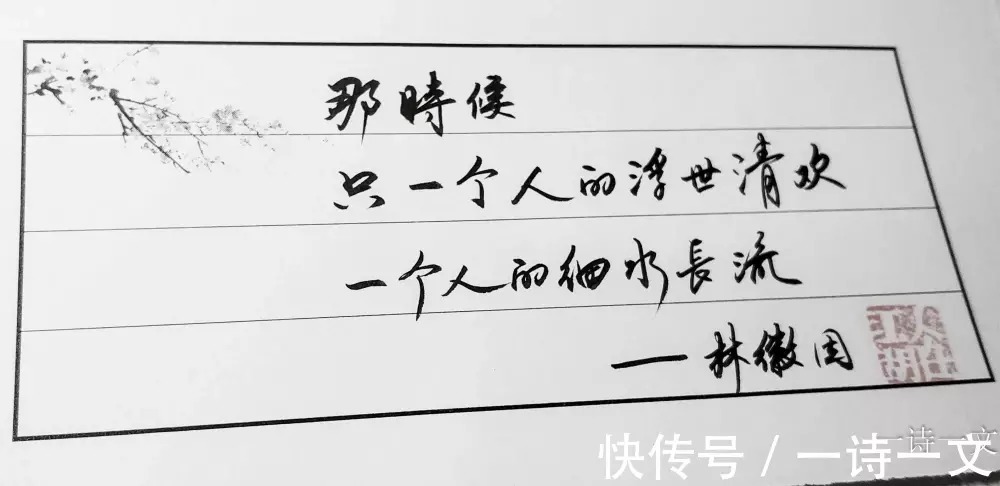 那時候
只一个人的浮世清欢
一个人的细水長流
—林徽因
一诗一文
快传号 / 一诗一文